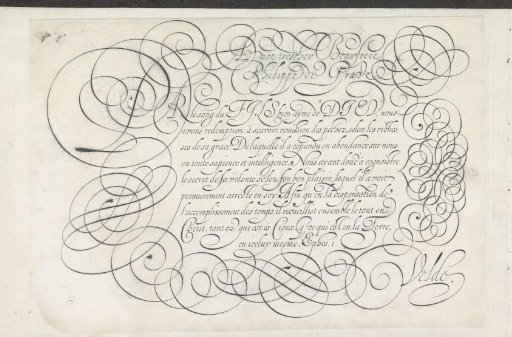 A mon trescher Beaufrere
Philippe de
Par le sang du FILS bien aymé de DIEU nous
avons redemption: a scavoir, remission des pechez, selon les riches
ses de sa grace De laquelle il a espandu en abondance sur nous
en toute sapience et intelligence: Nous ayant donné a cognoistre
le secret de sa volonté selon son bon plaisir, lequel il avoit
premierement arresté en soy: Afin qu'en la dispensation de
l'accomplissement des temps, il recueillist ensemble le tout en
Christ, tant ce qui est es Cieux, que ce qui est en la Terre,
en iceluy mesme. Ephes. i
Velde.